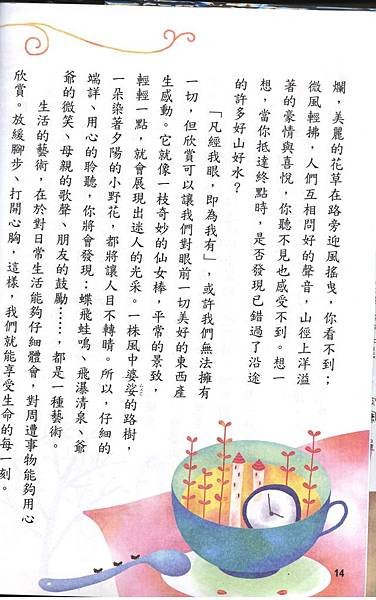 爛，美麗的花草在路旁迎風搖曳，你看不到；
微風輕拂，人們互相問好的聲音，山徑上洋溢
著的豪情與喜悅，你聽不見也感受不到。想一
想，當你抵達終點時，是否發現已錯過了沿途
的許多好山好水？
「凡經我眼，即為我有」，或許我們無法擁有
一切，但欣賞可以讓我們對眼前一切美好的東西產
生感動。它就像一枝奇妙的仙女棒，平常的景致，
輕輕一點，就會展現出迷人的光采。一株風中婆娑的路樹，
一朵染著夕陽的小野花，都將讓人目不轉睛。所以，仔細的
端詳、用心的聆聽，你將會發現：蝶飛蛙鳴、飛瀑清泉、爺
爺的微笑、母親的歌聲、朋友的鼓勵……，都是一種藝術。
生活的藝術，在於對日常生活能夠仔細體會，對周遭事物能夠用心
欣賞。放緩腳步、打開心胸，這樣，我們就能享受生命的每一刻。
14